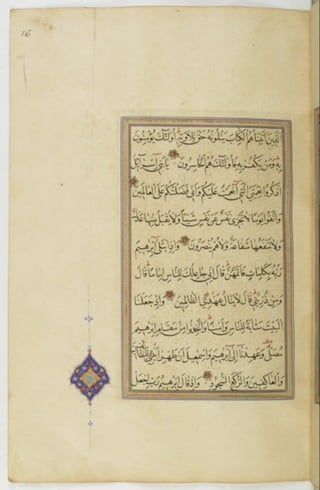 16
الذين اتيناهم الكتاب يتلونه حق تلاوته اولئك يؤمنون
به ومن يكفر به فاولئك هم الخاسرون يا بنى اسرائيل
اذكروا نعمتى التى انعمت عليكم وانى فضلتكم على العالمين
واتقوا يوما لا تجزى نفس عن نفس شيئا ولا يقبل منها عدل
ولا تنفعها شفاعة ولا هم ينصرون واذ ابتلى ابرهيم
ربه بكلمات فاتمهن قال انى جاعلك للناس اماما قال
ومن ذريتى قال لا ينال عهدى الظالمين واذ جعلنا
البيت مثابة للناس وامنا واتخذوا من مقام ابرهيم
مصلى وعهدنا الى ابرهيم واسمعيل ان طهرا بيتى للطائفين
والعاكفين والركع السجود واذ قال ابرهيم رب اجعل